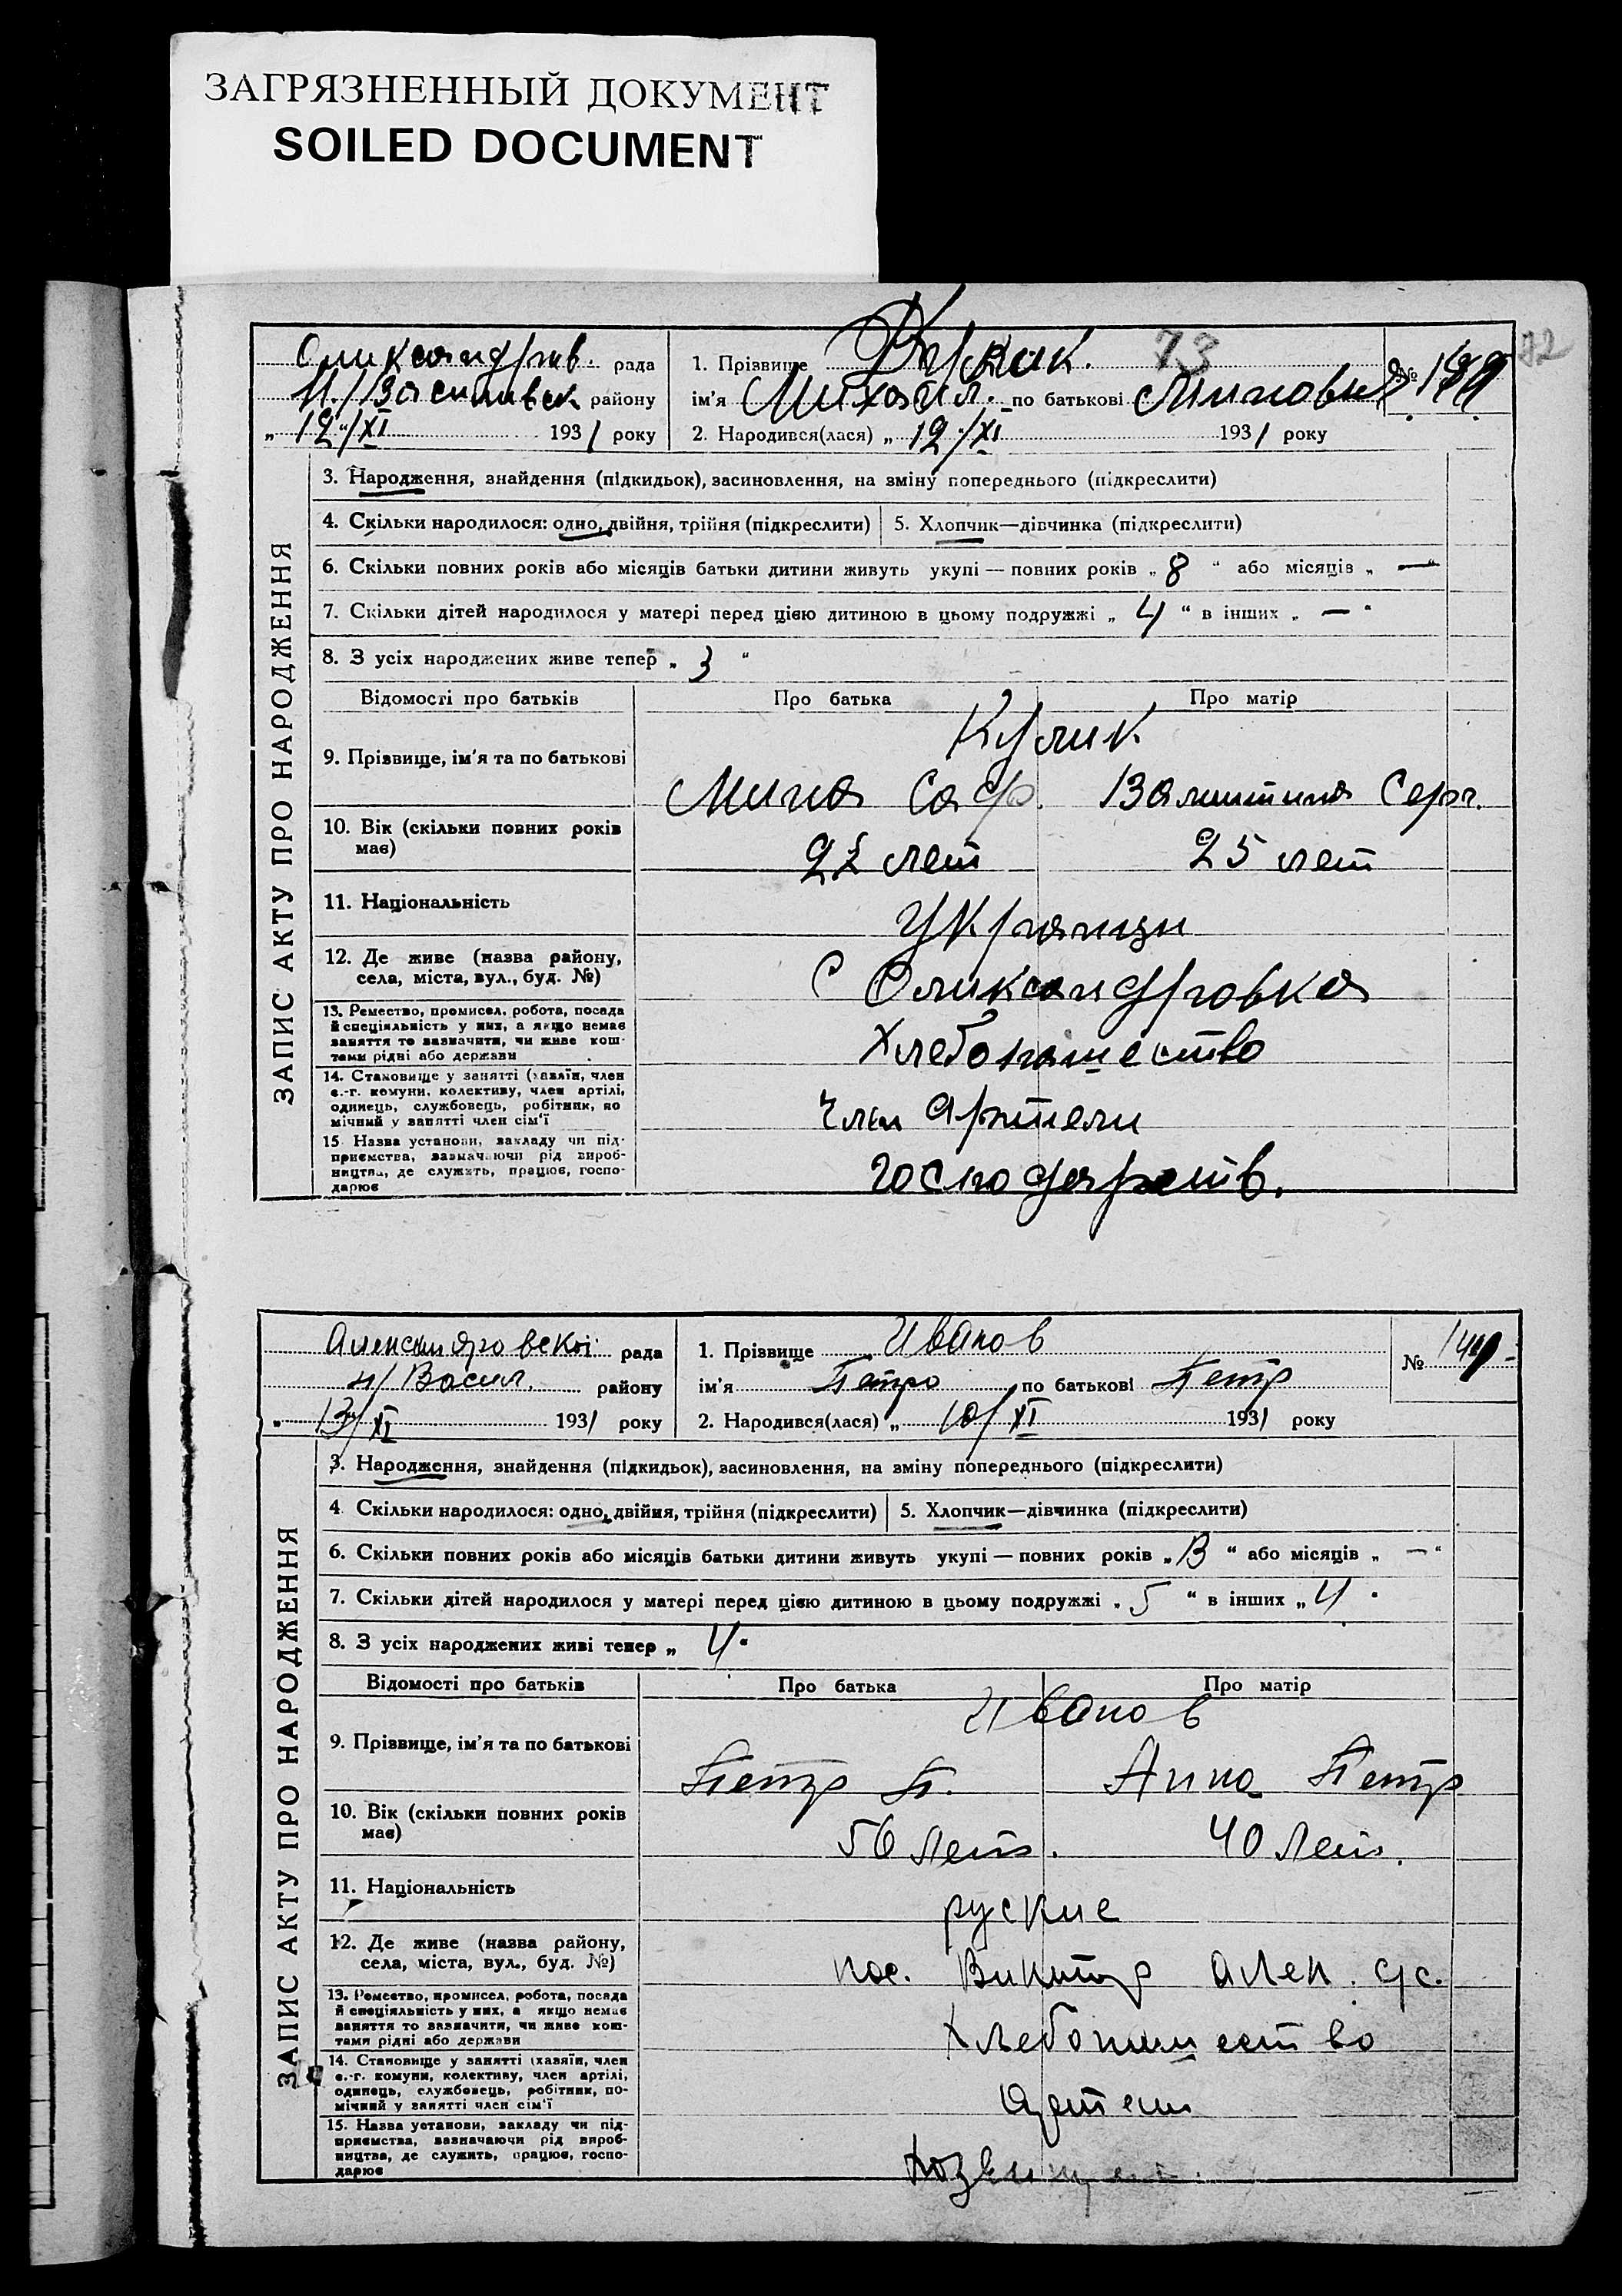 ЗАГРЯЗНЕННЫЙ ДОКУМЕНТ
SOILED DOCUMENT
ЗАПИС АКТУ ПРО НАРОДЖЕННЯ
Олександрів. рада
Н./Василивск району
„12“/XI 1931 року
1. Прізвище Кулик. 73
ім'я Михаил. по батькові Минович
2. Народився(лася) „12“/XI 1931 року
№ 72
3. Народження, знайдення (підкидьок), засиновлення, на зміну попереднього (підкреслити)
4. Скільки народилося: одно, двійня, трійня (підкреслити) 5. Хлопчик—дівчинка (підкреслити)
6. Скільки повних років або місяців батьки дитини живуть укупі — повних років „8“ або місяців „—“
7. Скільки дітей народилося у матері перед цією дитиною в цьому подружжі „4“ в інших „—“
8. З усіх народжених живе тепер „3“
Відомості про батьків Про батька Про матір
Кулик
9. Прізвище, ім'я та по батькові Мина Саф. Валентина Серг.
10. Вік (скільки повних років має) лет 25 лет
11. Національність Украинци
12. Де живе (назва району, села, міста, вул., буд. №) с Олександровка
13. Ремество, промисел, робота, посада й спеціяльність у них, а якщо немає заняття то зазначити, чи живе коштами рідні або держави Хлебопашество
14. Становище у занятті (хазяїн, член с.-г. комуни, колективу, член артілі, одинець, службовець, робітник, помічний у занятті член сім'ї Член Артели
15 Назва установи, закладу чи підприємства, зазначаючи рід виробництва, де служить, працює, господарює господарств.
ЗАПИС АКТУ ПРО НАРОДЖЕННЯ
Александровскої рада
н/Васил. району
„13“/XI 1931 року
1. Прізвище Иванов
ім'я Петро по батькові Петр
2. Народився(лася) „10/XI 1931 року
№
3. Народження, знайдення (підкидьок), засиновлення, на зміну попереднього (підкреслити)
4 Скільки народилося: одно, двійня, трійня (підкреслити) 5. Хлопчик—дівчинка (підкреслити)
6. Скільки повних років або місяців батьки дитини живуть укупі — повних років „13“ або місяців „—“
7. Скільки дітей народилося у матері перед цією дитиною в цьому подружжі „5“ в інших „4“
8. З усіх народжених живі тепер „4“
Відомості про батьків Про батька Про матір
Иванов
9. Прізвище, ім'я та по батькові Петр П. Анна Петр
10. Вік (скільки повних років має) 56 лет. 40 лет.
11. Національність руские
12. Де живе (назва району, села, міста, вул., буд. №) пос. Алек. с/с.
13. Ремество, промисел, робота, посада й спеціяльність у них, а якщо немає заняття то зазначити, чи живе коштами рідні або держави Хлебопашество
14. Становище у занятті (хазяїн, член с.-г. комуни, колективу, член артілі, одинець, службовець, робітник, помічний у занятті член сім'ї Артели
15. Назва установи, закладу чи підприємства, зазначаючи рід виробництва, де служить, працює, господарює